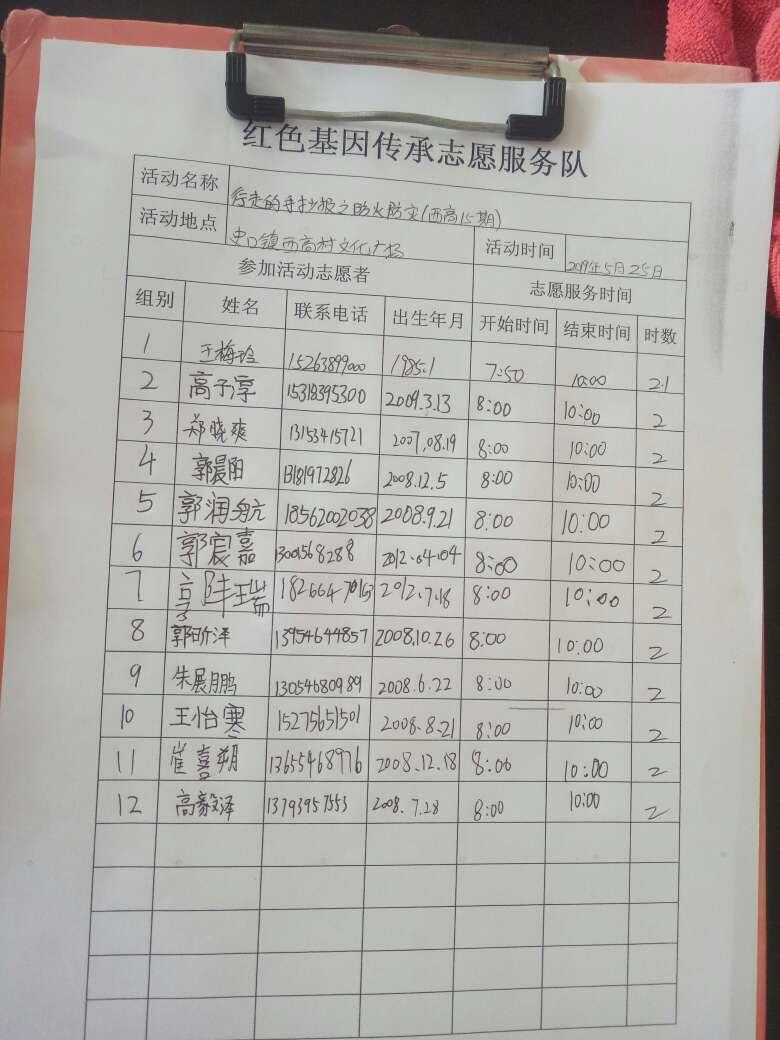 红色基因传承志愿服务队
活动名称 行走的手抄报之防火防灾(西高15期)
活动地点 史口镇西高村文化广场 活动时间 2019年5月25日
参加活动志愿者 志愿服务时间
组别 姓名 联系电话 出生年月 开始时间 结束时间 时数
1 王梅玲 15263899000 1985.1 7:50 10:00 2.1
2 高子淳 15318395300 2009.3.13 8:00 10:00 2
3 郑晓爽 13153415721 2007.08.19 8:00 10:00 2
4 郭晨阳 13181972826 2008.12.5 8:00 10:00 2
5 郭润航 18562002038 2008.9.21 8:00 10:00 2
6 郭宸嘉 13001568288 2012.04.04 8:00 10:00 2
7 2012.7.18 8:00 10:00 2
8 郭昕泽 13954644857 2008.10.26 8:00 10:00 2
9 朱展鹏 13054680989 2008.6.22 8:00 10:00 2
10 王怡寒 15275651501 2008.8.21 8:00 10:00 2
11 崔喜朔 13655468976 2008.12.18 8:00 10:00 2
12 高毅泽 13793957553 2008.7.28 8:00 10:00 2